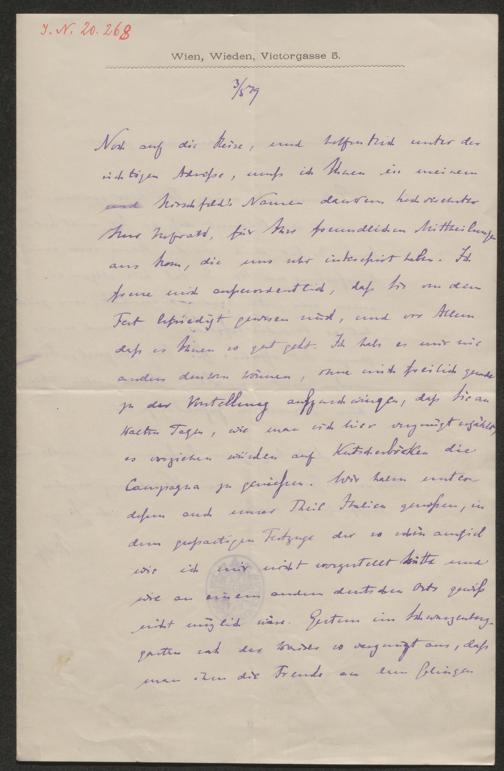 J. N. 20.268
Wien, Wieden, Victorgasse 5.
3/5 79
Noch auf die Reise, und hoffentlich unter der
richtigen Adresse, muß ich Ihnen in meinem
und Hirschfeld's Namen danken, hochverehrter
Herr Hofrath, für Ihre freundlichen Mittheilungen
aus Rom, die uns sehr interessirt haben. Ich
freue mich außerordentlich, daß Sie von dem
Fest befriedigt gewesen sind, und vor Allem
daß es Ihnen so gut geht. Ich habe es mir nie
anders denken können, ohne mich freilich gerade
zu der Vorstellung aufzuschwingen, daß Sie an
kalten Tagen, wie man sich hier vergnügt erzählt,
es vorziehen würden auf Kutscherböcken die
Campagna zu genießen. Wir haben unter
dessen auch unser Theil Italien genossen, in
dem großartigen Festzuge der so schön ausfiel
wie ich mir nicht vorgestellt hätte und
wie an einem andern deutschen Orte gewiß
nicht möglich wäre. Gestern im Schwarzenberg-
garten sah der so vergnügt aus, daß
man ihm die Freude an dem Gelingen